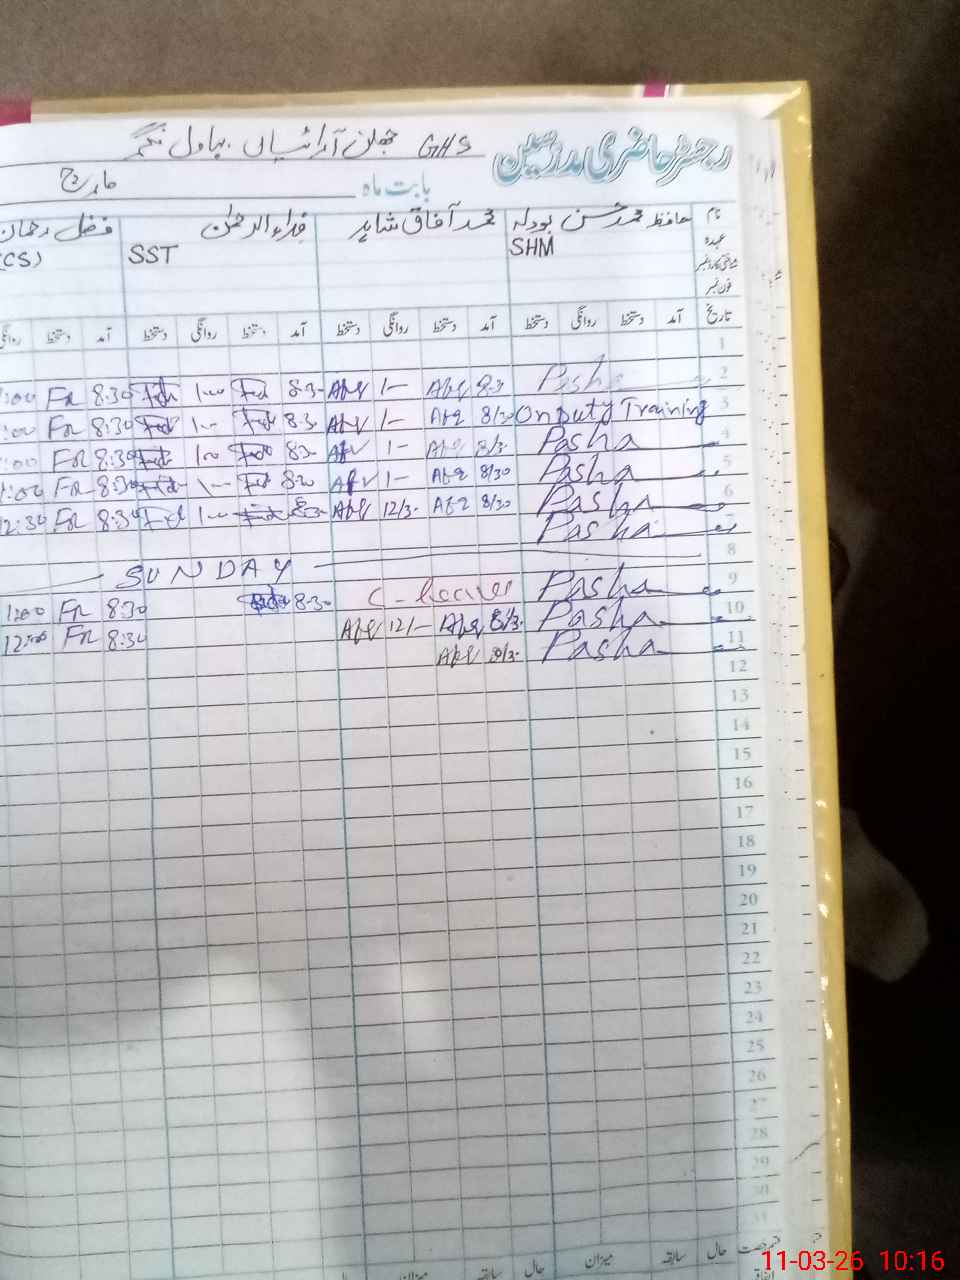 رجسٹر حاضری مدرسین GHS جھلن آرائیاں بہاول نگر
بابت ماہ مارچ
نام حافظ محمد حسن بودلہ محمد آفاق شاہد فداء الرحمٰن فضل رحمان
عہدہ SHM SST (CS)
فون نمبر
تاریخ آمد دستخط روانگی دستخط آمد دستخط روانگی دستخط آمد دستخط روانگی دستخط آمد دستخط
1
2 Pasha 8:30 Afq 1- Afq 8:30 1:00 8:30 Fr 1:00
3 On Duty Training 8/30 Afq 1- Afq 8:30 1:00 8:30 Fr 1:00
4 Pasha 8/30 Afq 1- Afq 8:30 1:00 8:30 Fr 1:00
5 Pasha 8/30 Afq 1- Afq 8:30 1:00 8:30 Fr 1:00
6 Pasha 8/30 Afq 12/30 Afq 8:30 1:00 8:30 Fr 12:30
7 Pasha
8 SUNDAY
9 Pasha C-leave 8:30 8:30 Fr 1:00
10 Pasha 8/30 Afq 12/- Afq 8:30 Fr 12:00
11 Pasha 8/30 Afq
12
13
14
15
16
17
18
19
20
21
22
23
24
25
26
27
28
29
30
31
قسم رخصت حال سابقہ میزان حال سابقہ میزان
اتفاقیہ
11-03-26 10:16